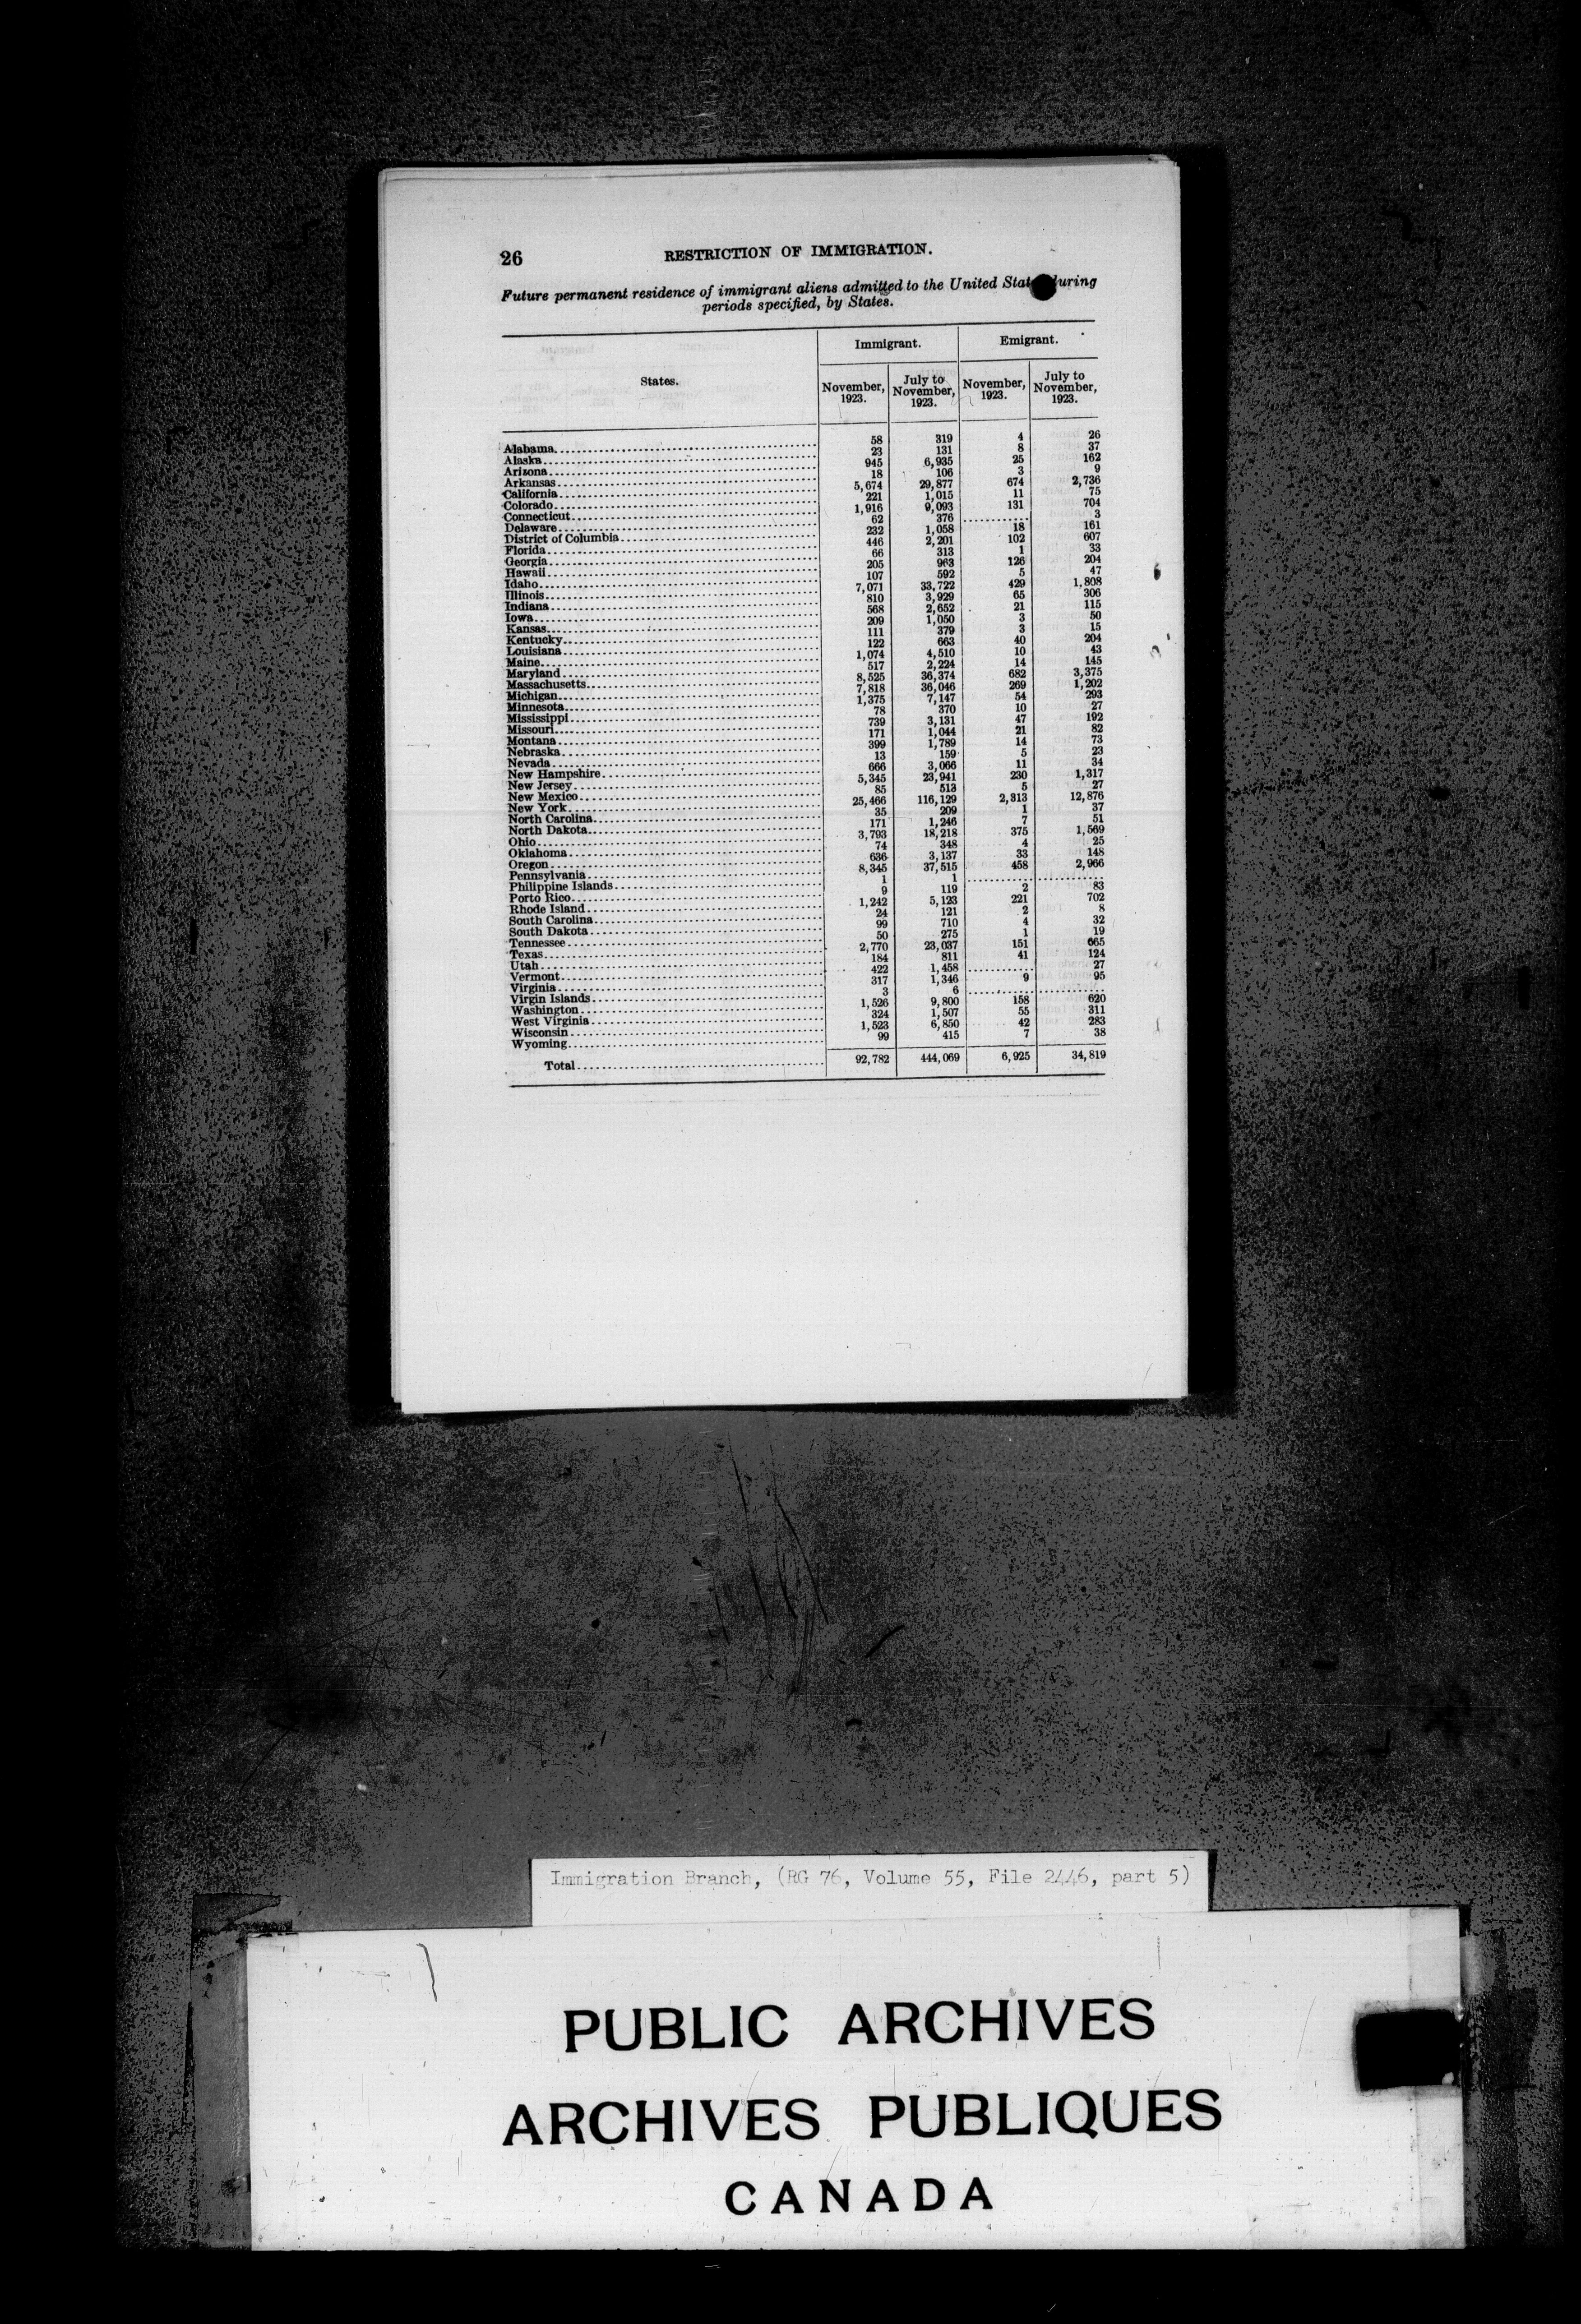 26 RESTRICTION OF IMMIGRATION.
Future permanent residence of immigrant aliens admitted to the United States during
periods specified, by States.
States. Immigrant. Emigrant.
November, 1923. July to November, 1923. November, 1923. July to November, 1923.
Alabama 58 319 4 26
Alaska 23 131 8 37
Arizona 945 6,935 25 162
Arkansas 18 106 3 9
California 5,674 29,877 674 2,736
Colorado 221 1,015 11 75
Connecticut 1,916 9,093 131 704
Delaware 62 376 .......... 3
District of Columbia 232 1,058 18 161
Florida 446 2,201 102 607
Georgia 66 313 1 33
Hawaii 205 963 126 204
Idaho 107 592 5 47
Illinois 7,071 33,722 429 1,808
Indiana 810 3,929 65 306
Iowa 568 2,652 21 115
Kansas 209 1,050 3 50
Kentucky 111 379 3 15
Louisiana 122 663 40 204
Maine 1,074 4,510 10 43
Maryland 517 2,224 14 145
Massachusetts 8,525 36,374 682 3,375
Michigan 7,818 36,046 269 1,202
Minnesota 1,375 7,147 54 293
Mississippi 78 370 10 27
Missouri 739 3,131 47 192
Montana 171 1,044 21 82
Nebraska 399 1,789 14 73
Nevada 13 159 5 23
New Hampshire 666 3,066 11 34
New Jersey 5,345 23,941 230 1,317
New Mexico 85 513 5 27
New York 25,466 116,129 2,313 12,876
North Carolina 35 209 1 37
North Dakota 171 1,246 7 51
Ohio 3,793 18,218 375 1,569
Oklahoma 74 348 4 25
Oregon 636 3,137 33 148
Pennsylvania 8,345 37,515 458 2,966
Philippine Islands 1 1 .......... ..........
Porto Rico 9 119 2 83
Rhode Island 1,242 5,123 221 702
South Carolina 24 121 2 8
South Dakota 99 710 4 32
Tennessee 50 275 1 19
Texas 2,770 23,037 151 665
Utah 184 811 41 124
Vermont 422 1,458 .......... 27
Virginia 317 1,346 9 95
Virgin Islands 3 6 .......... ..........
Washington 1,526 9,800 158 620
West Virginia 324 1,507 55 311
Wisconsin 1,523 6,850 42 283
Wyoming 99 415 7 38
Total 92,782 444,069 6,925 34,819
Immigration Branch, (RG 76, Volume 55, File 2446, part 5)
PUBLIC ARCHIVES
ARCHIVES PUBLIQUES
CANADA